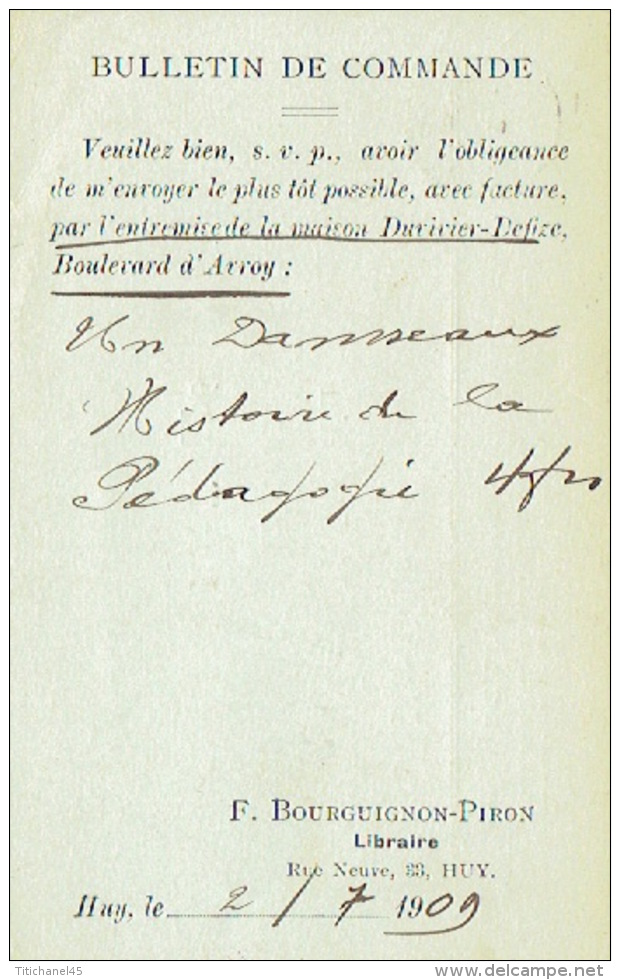 BULLETIN DE COMMANDE
Veuillez bien, s. v. p., avoir l'obligeance
de m'envoyer le plus tôt possible, avec facture,
par l'entremise de la maison Duvivier-Defize,
Boulevard d'Avroy :
Un Damseaux
Histoire de la
Pédagogie 4 fr
F. BOURGUIGNON-PIRON
Libraire
Rue Neuve, 33, HUY.
Huy, le 2 / 7 1909
Titichanel45
delcampe.net